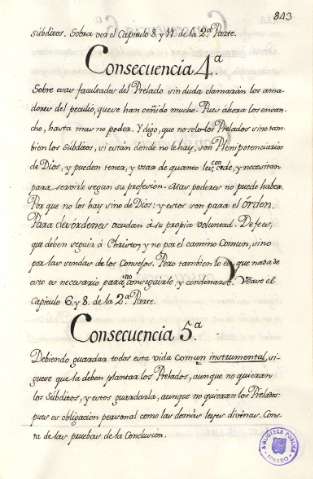 843
súbditos. Sobra vea el Capítulo 8. y 11. de la 2ª. Parte.
Consecuencia 4ª.
Sobre estas facultades del Prelado sin duda clamarán los amadores
del peculio, que se han ceñido mucho. Pues ahora los ensancho,
hasta mas no poder. Y digo, que no solo los Prelados sino tambien
los súbditos, si están donde no le hay, son Plenipotenciarios
de Dios, y pueden tener, y usar de quanto les concede, y necesitan
para servirle segun su profesion. Mas poderes no puede haber.
Por que no los hay sino de Dios: y estos son para el órden.
Para desordenes acudan á su propia voluntad. De fees,
que deben seguir á Christo, y no por el camino Comun, sino
por las sendas de los Consejos. Pero tambien lo es que nada de
esto es necesario para no conseguirlo, y condenarse. Véase el
Capítulo 6. y 8. de la 2ª. Parte.
Consecuencia 5ª.
Debiendo guardar todos esta vida comun instrumental, siguese
que la deben plantar los Prelados, aunque no quieran
los súbditos, y estos guardarla, aunque no quieran los Prelados:
pues es obligación personal como las demás leyes divinas. Consta
de las pruebas de la Conclusion.
BIBLIOTECA PUBLICA